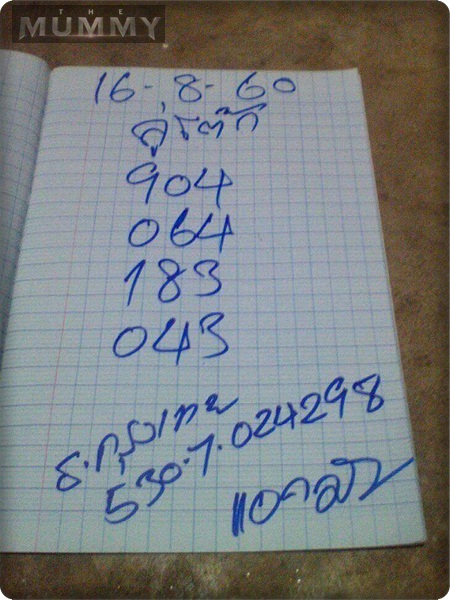 THE
MUMMY
16-8-60
คู่โต๊ด
904
064
183
043
ธ.กรุงเทพ
530.7.024298